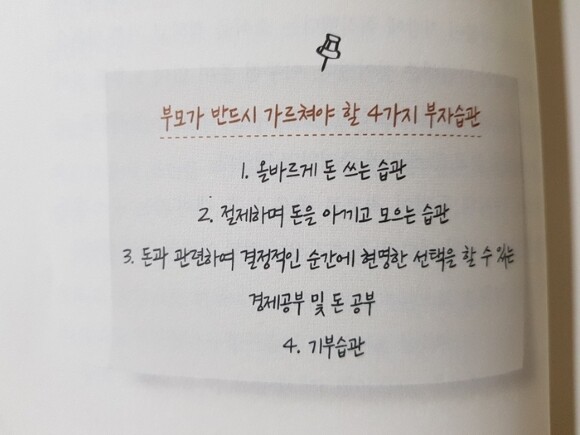 부모가 반드시 가르쳐야 할 4가지 부자습관
1. 올바르게 돈 쓰는 습관
2. 절제하며 돈을 아끼고 모으는 습관
3. 돈과 관련하여 결정적인 순간에 현명한 선택을 할 수 있는
경제공부 및 돈 공부
4. 기부습관